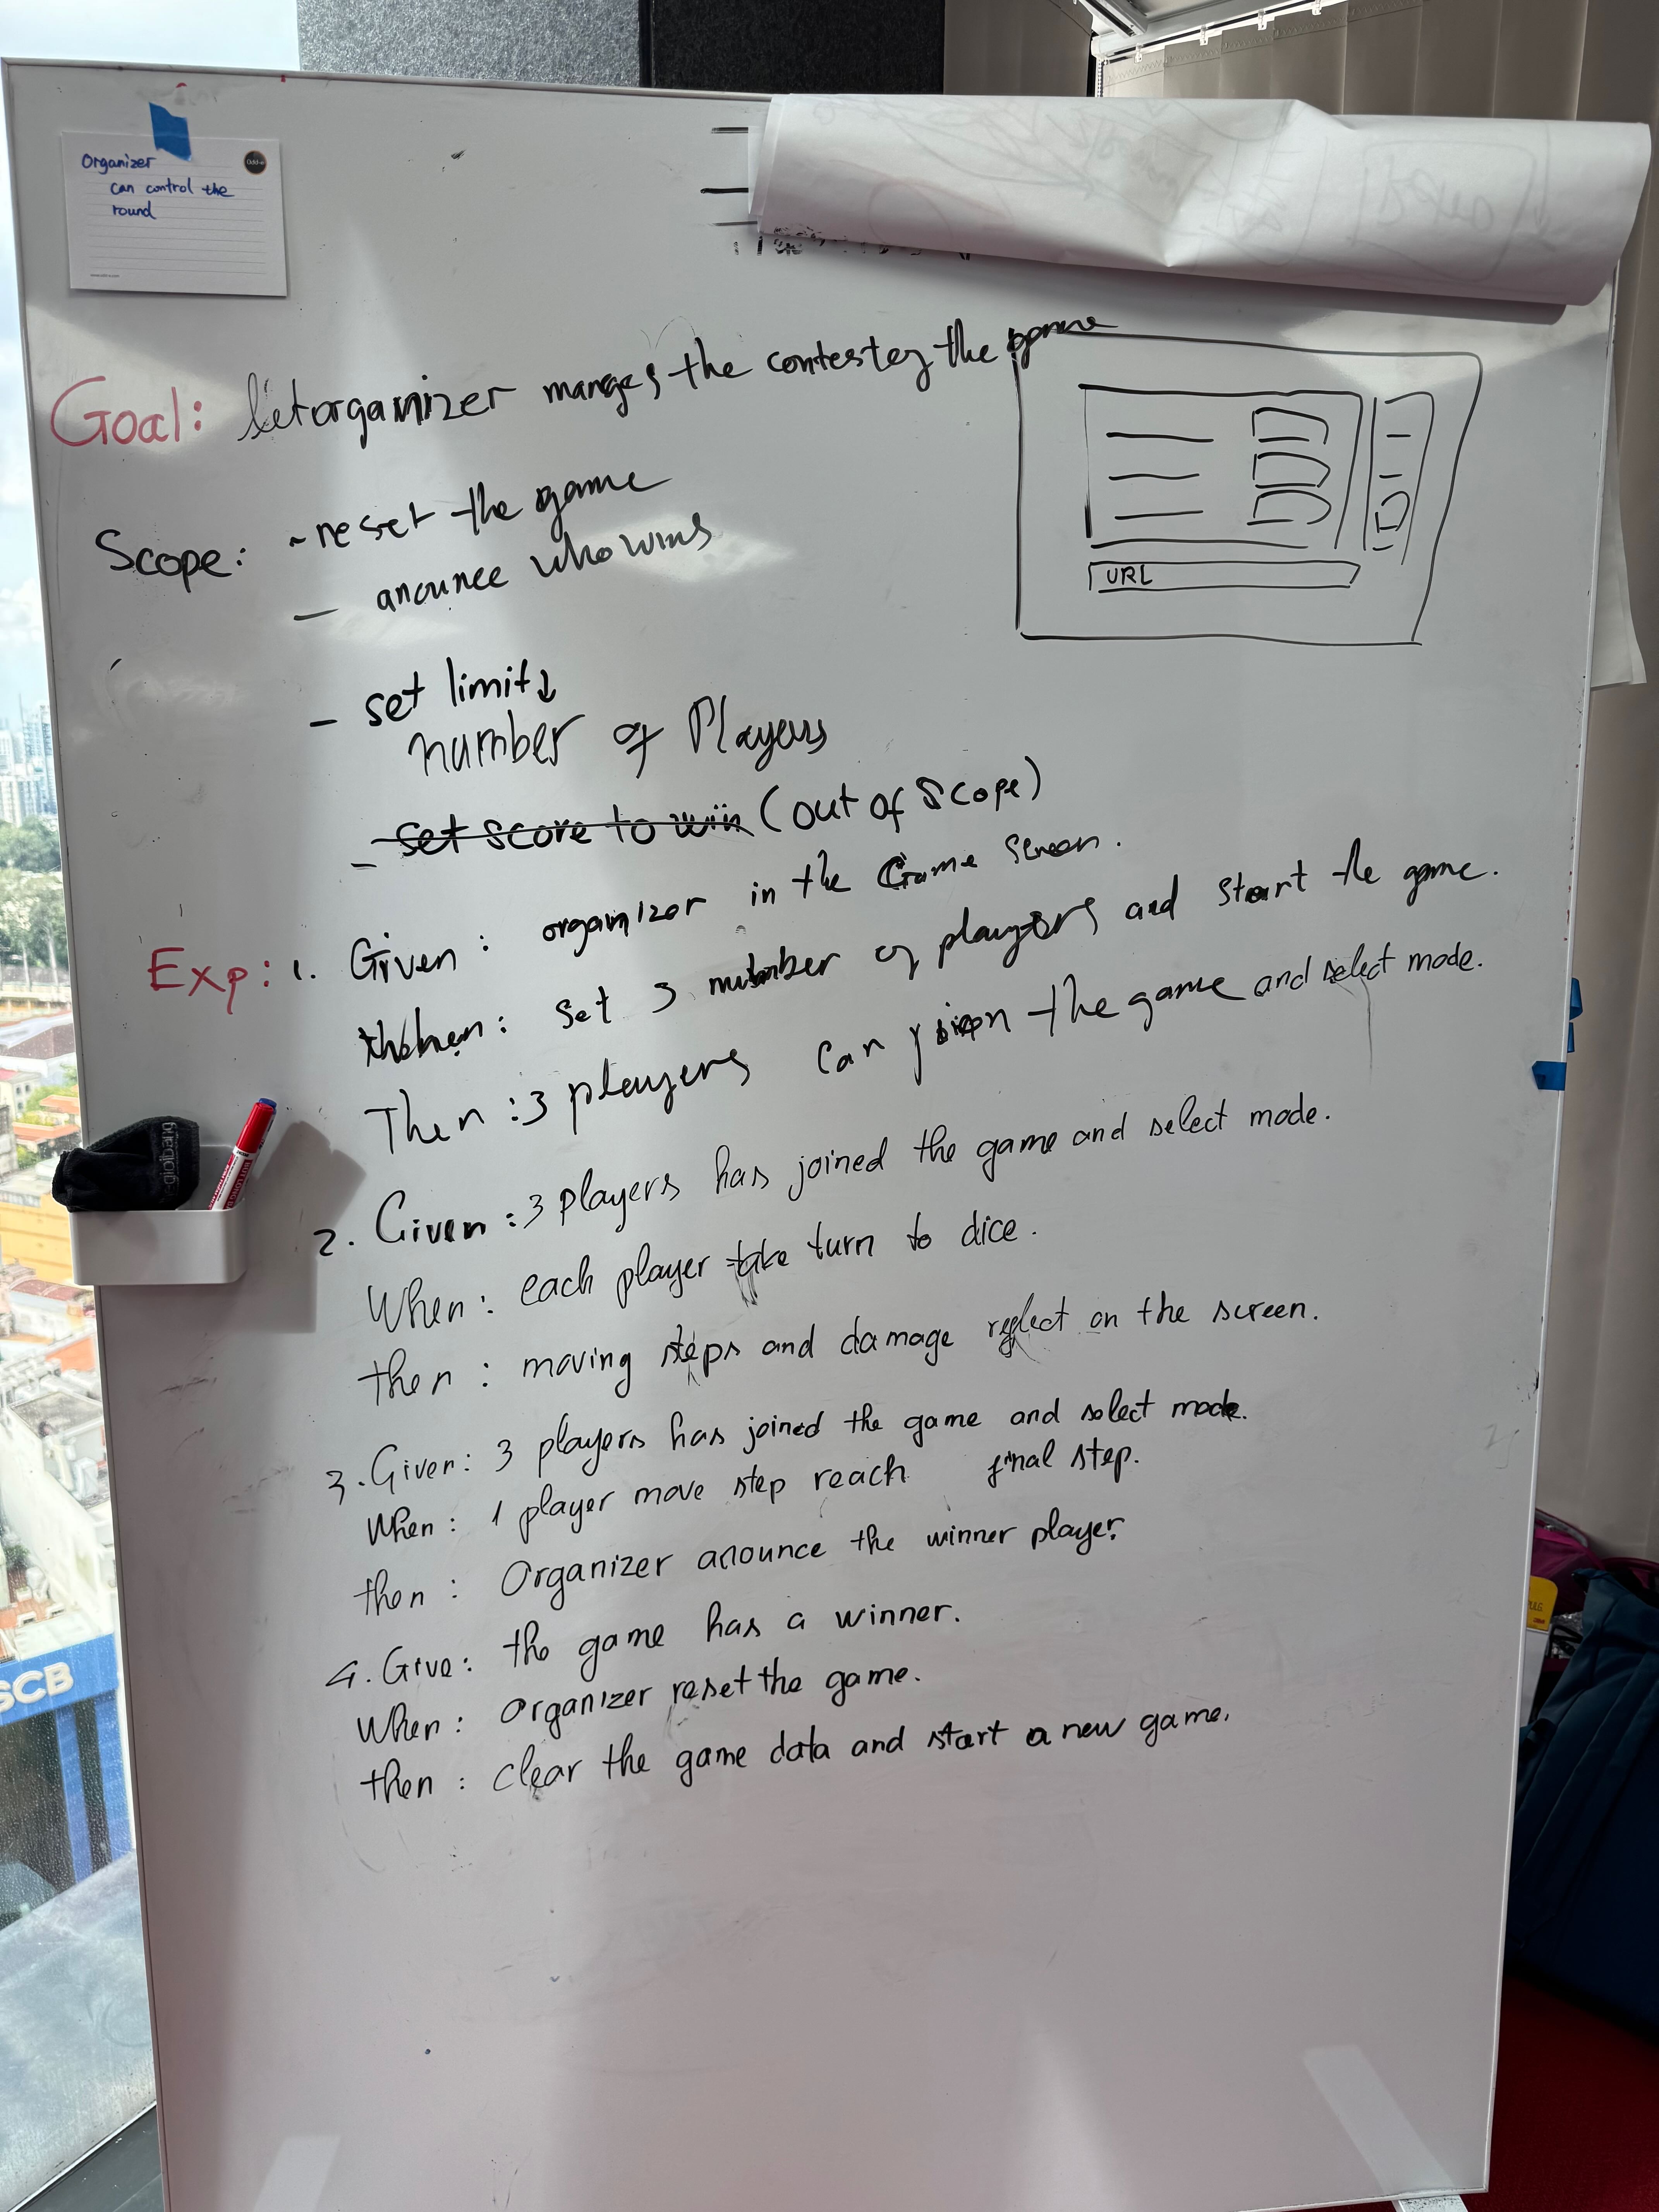 Organizer
can control the
round
Odd-e
Goal: let organizer manges the contest the game
Scope: - reset the game
- anounce who wins
- set limit
number of Players
- set score to win (out of scope)
URL
Exp: 1. Given : organizor in the Game Screen.
When : Set 3 number of players and start the game.
Then : 3 players can join the game and select mode.
2. Given : 3 players has joined the game and select mode.
When : each player take turn to dice.
then : moving steps and damage reflect on the screen.
3. Given : 3 players has joined the game and select mode.
When : 1 player move step reach final step.
then : Organizer anounce the winner player.
4. Give : the game has a winner.
When : Organizer reset the game.
then : clear the game data and start a new game.
SCB